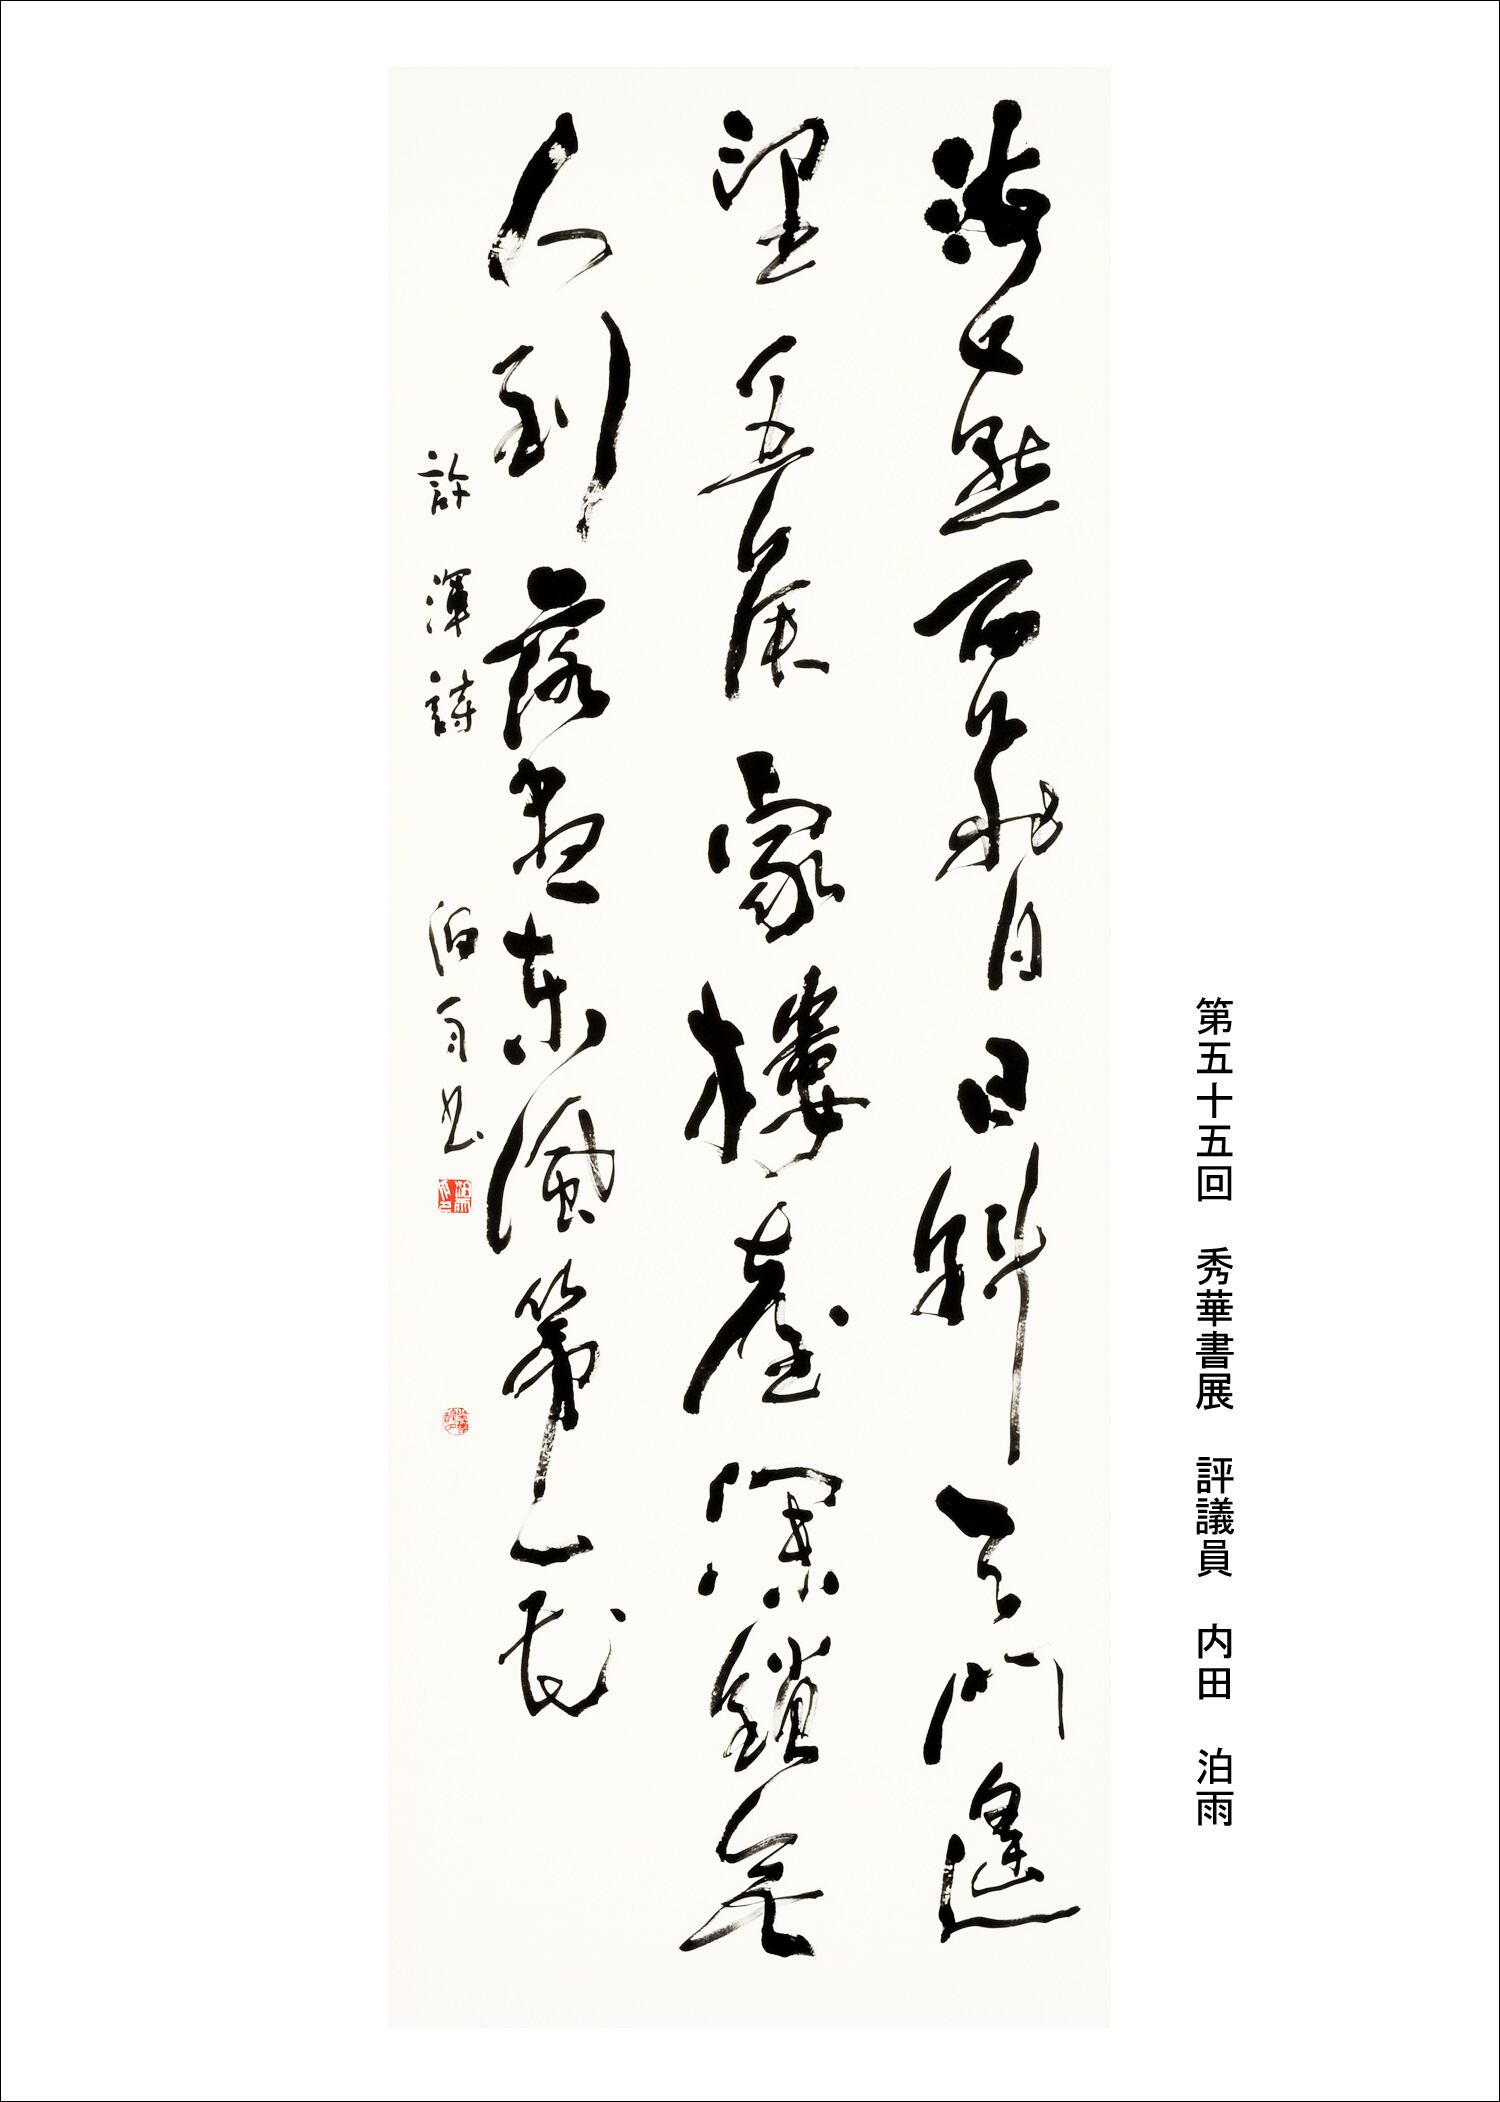 第五十五回　秀華書展　評議員　内田　泊雨
海燕西飛白日斜天門遙
望五侯家樓臺深鎖無
人到落盡東風第一花
許渾詩　泊雨書